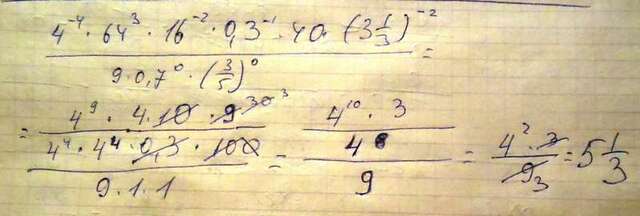 4⁻⁴ · 64³ · 16⁻² · 0,3⁻¹ · 40 · (3 1/3)⁻²
/ 9 · 0,7⁰ · (3/5)⁰ =
= 4⁹ · 4 · 10 · 9 30 3 / 4⁴ · 4⁴ · 0,3 · 100 / 9 · 1 · 1 = 4¹⁰ · 3 / 4⁸ / 9 = 4² · 3 / 9 3 = 5 1/3